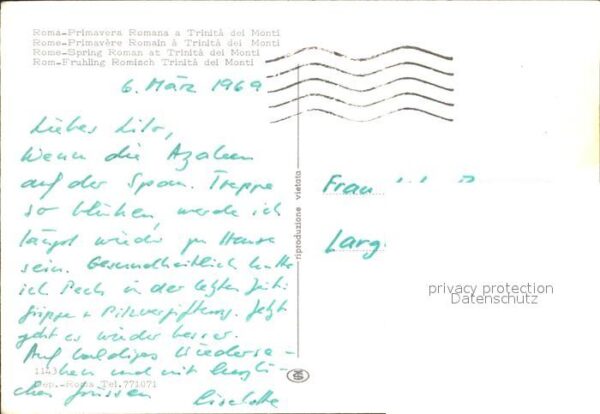 Roma-Primavera Romana a Trinità dei Monti
Rome-Primavère Romain à Trinità dei Monti
Rome-Spring Roman at Trinità dei Monti
Rom-Fruhling Romisch Trinità dei Monti
6. März 1969
Liebes Lilo,
Wenn die Azaleen
auf der Span. Treppe
so blühen, werde ich
längst wieder zu Hause
sein. Gesundheitlich hatte
ich Pech in der letzten Zeit:
Grippe + Pilzvergiftung. Jetzt
geht es wieder besser.
Auf baldiges Wiederse-
hen und mit herzli-
chen Grüssen
Liselotte
1143
Dep.-Roma Tel.771071
riproduzione vietata
Frau
Larg
privacy protection
Datenschutz